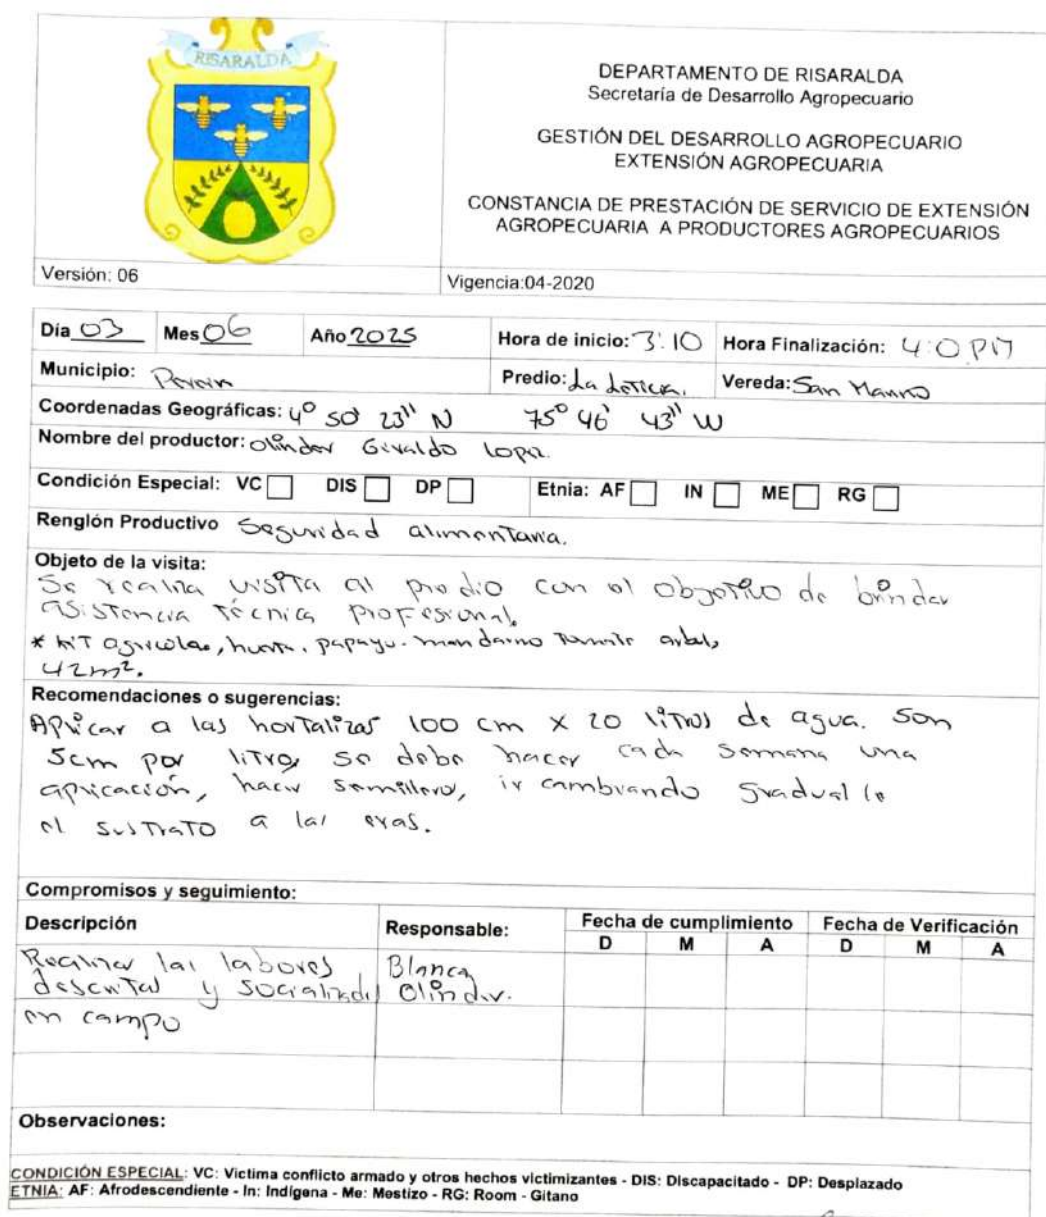 RISARALDA
DEPARTAMENTO DE RISARALDA
Secretaría de Desarrollo Agropecuario
GESTIÓN DEL DESARROLLO AGROPECUARIO
EXTENSIÓN AGROPECUARIA
CONSTANCIA DE PRESTACIÓN DE SERVICIO DE EXTENSIÓN
AGROPECUARIA A PRODUCTORES AGROPECUARIOS
Versión: 06 Vigencia:04-2020
Día 03 Mes 06 Año 2025 Hora de inicio: 3:10 Hora Finalización: 4:0 PM
Municipio: Predio: La Vereda: San
Coordenadas Geográficas: 4° 50' 23" N 75° 46' 43" W
Nombre del productor: Olinder Giraldo Lopez.
Condición Especial: VC DIS DP Etnia: AF IN ME RG
Renglón Productivo Seguridad alimentaria.
Objeto de la visita:
Se realiza visita al predio con el objetivo de brindar
asistencia técnica profesional.
* KIT agricolas, huerta, papayo. mandarino
42m².
Recomendaciones o sugerencias:
Aplicar a las hortalizas 100 cm x 20 litros de agua. Son
5cm por litro, se debe hacer cada semana una
aplicación, hacer semillero, ir cambiando gradual
el sustrato a las eras.
Compromisos y seguimiento:
Descripción Responsable: Fecha de cumplimiento Fecha de Verificación
D M A D M A
Realizar las labores Blanca
descritas y socializadas Olinder.
en campo
Observaciones:
CONDICIÓN ESPECIAL: VC: Victima conflicto armado y otros hechos victimizantes - DIS: Discapacitado - DP: Desplazado
ETNIA: AF: Afrodescendiente - In: Indígena - Me: Mestizo - RG: Room - Gitano